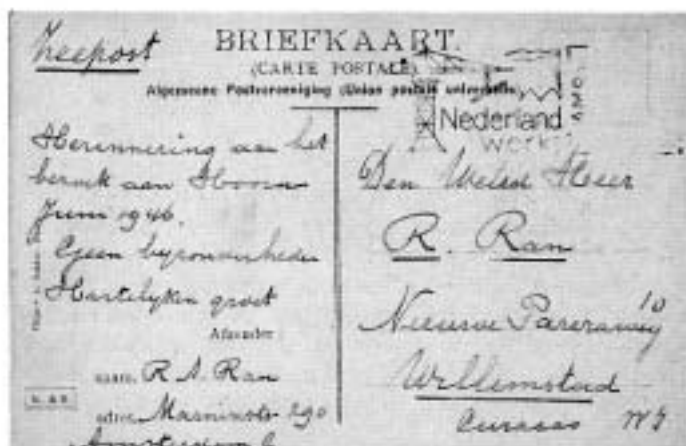 Zeepost
BRIEFKAART.
(CARTE POSTALE)
Algemeene Postvereeniging (Union postale universelle)
Nederland
werkt
Herinnering aan het
bezoek aan Hoorn
Juni 1946.
Geen byzonderheden
Hartelyken groet
Afzender
naam. R A. Ran
adres. 290
Amsterdam
Den Weled Heer
R. Ran
Nieuwe Pareraweg 10
Willemstad
Curacao